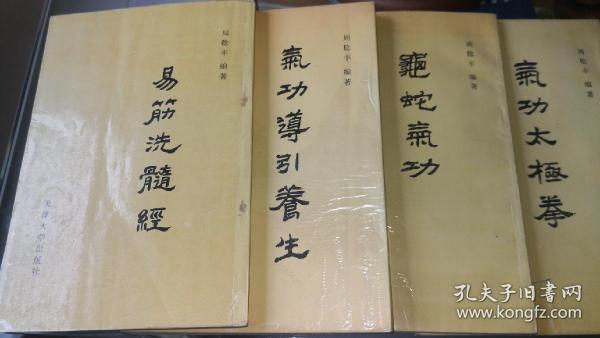 周稔丰 编著
易筋洗髓經
天津大学出版社
周稔丰 编著
氣功導引養生
周稔丰 编著
龜蛇氣功
周稔丰 编著
氣功太極拳
孔夫子旧书网
www.kongfz.com